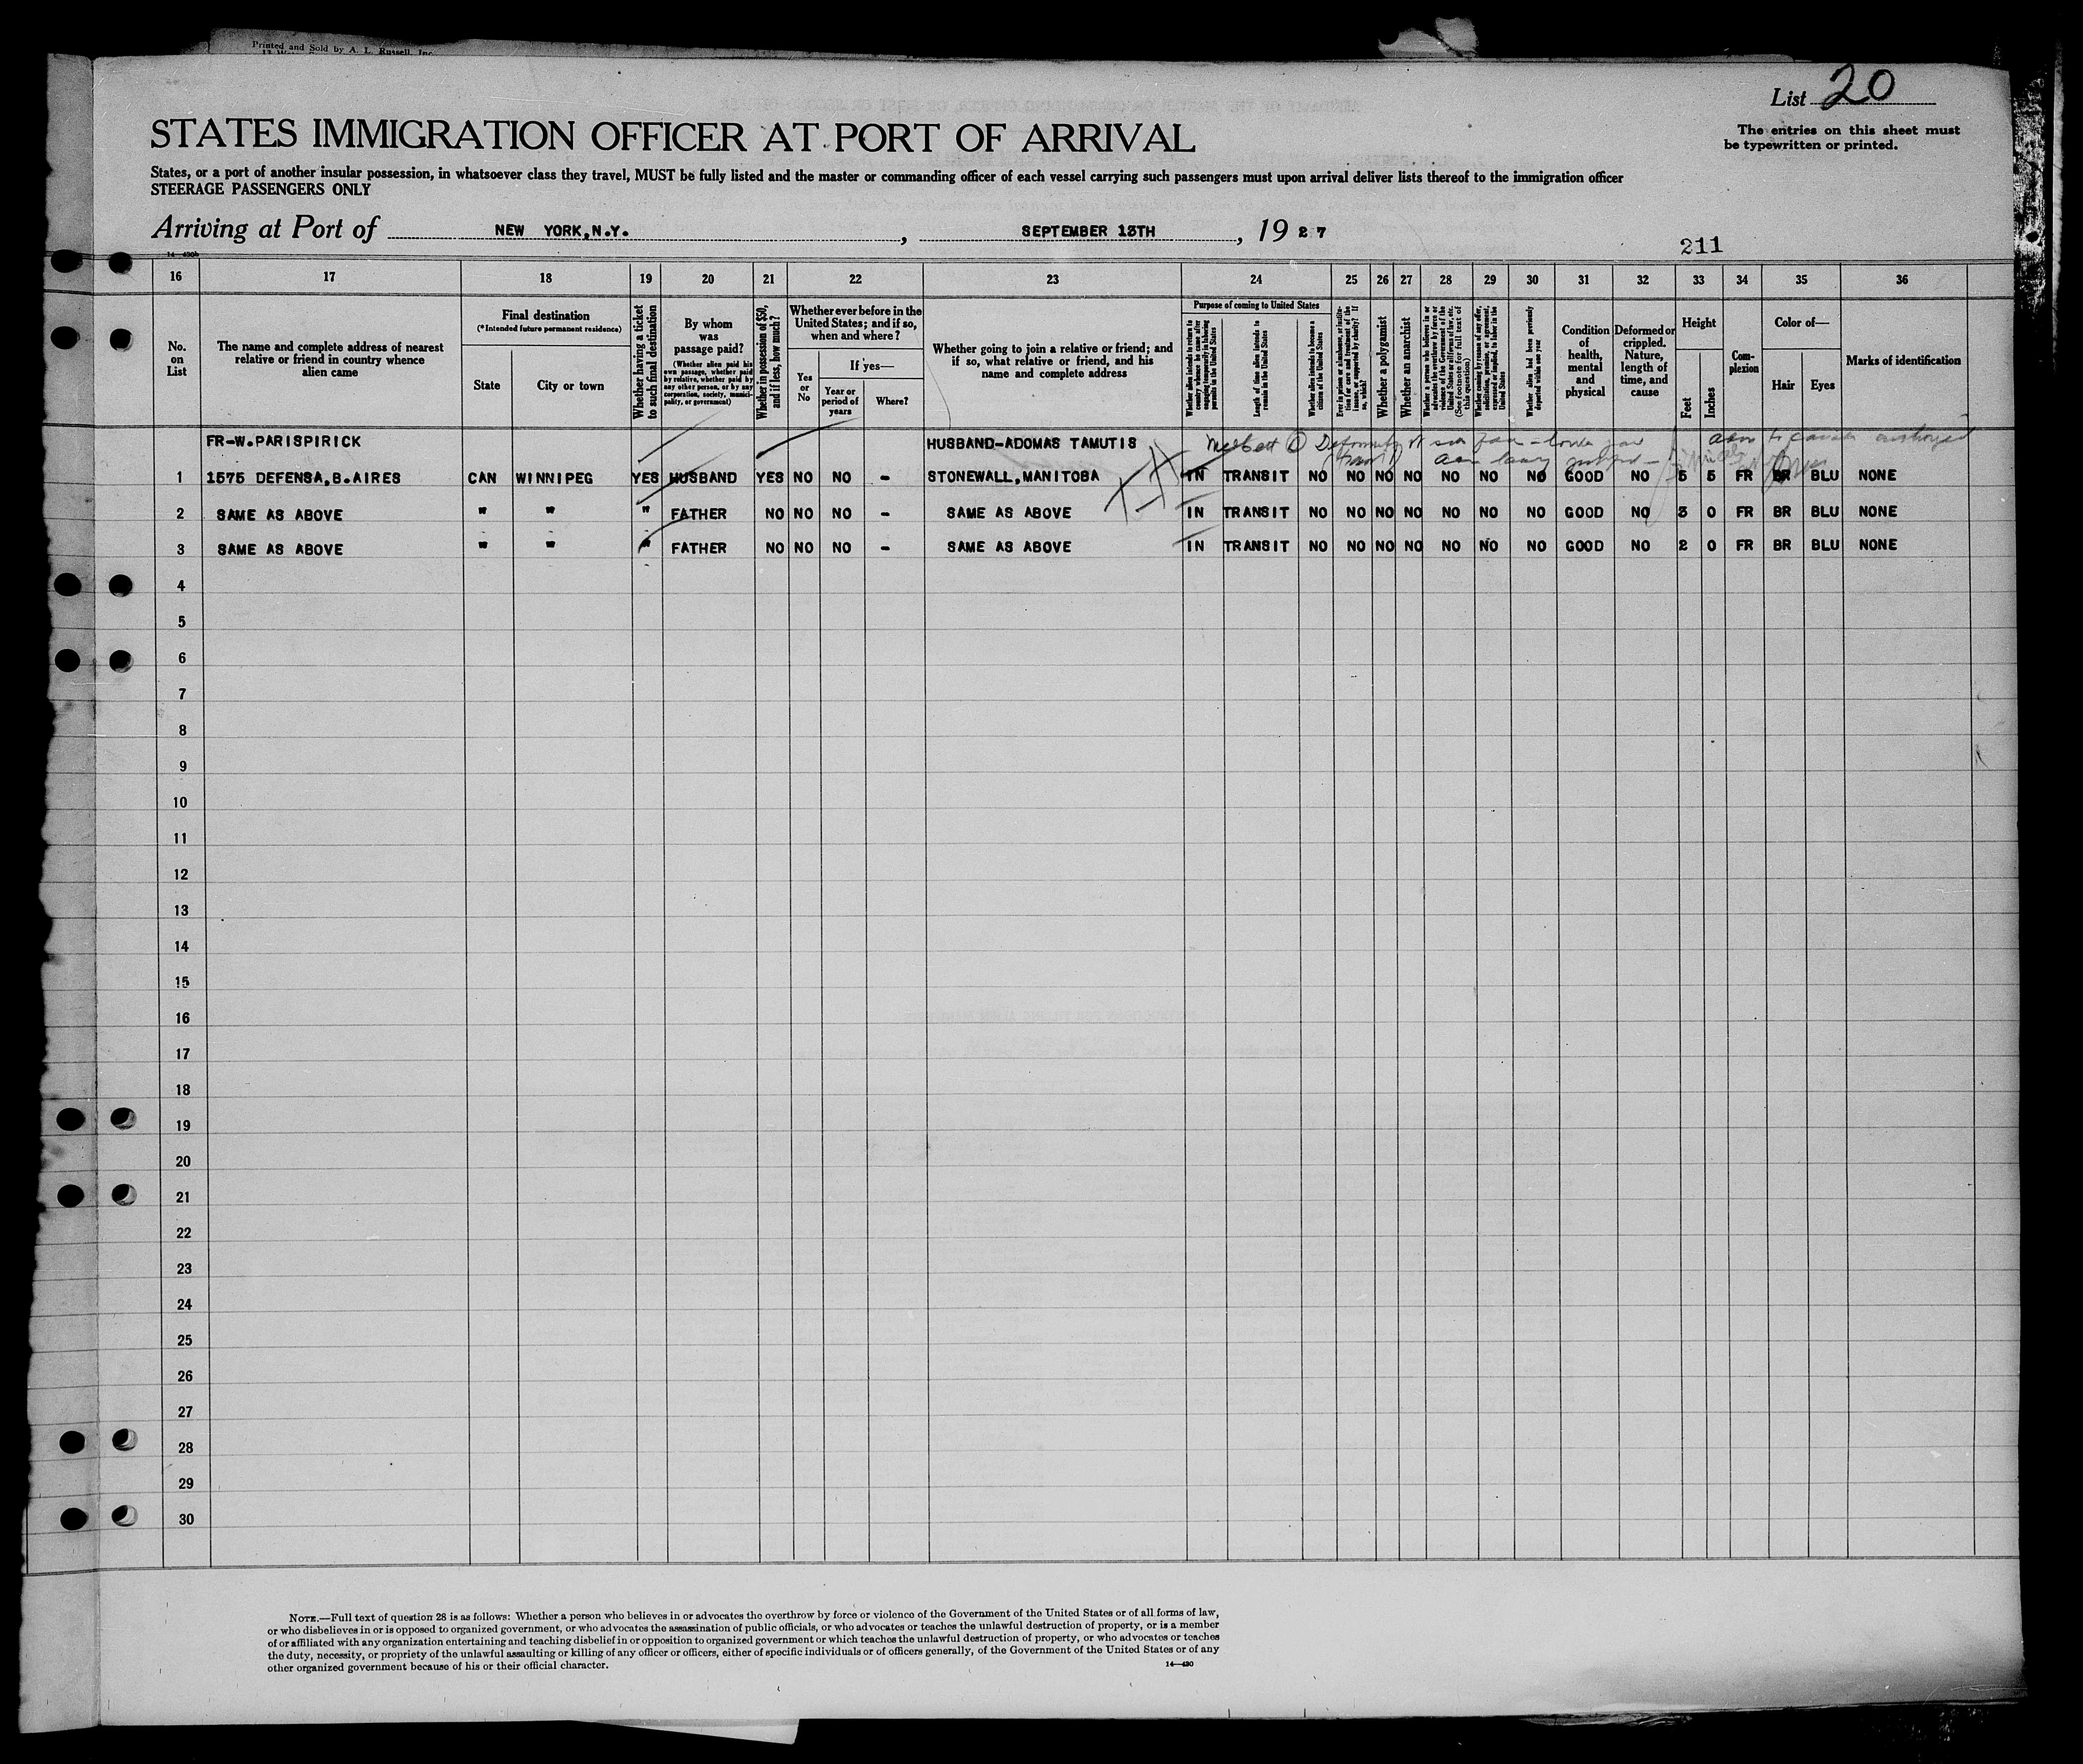 Printed and Sold by A. L. Russell, Inc.
List 20
The entries on this sheet must
be typewritten or printed.
STATES IMMIGRATION OFFICER AT PORT OF ARRIVAL
States, or a port of another insular possession, in whatsoever class they travel, MUST be fully listed and the master or commanding officer of each vessel carrying such passengers must upon arrival deliver lists thereof to the immigration officer
STEERAGE PASSENGERS ONLY
Arriving at Port of NEW YORK, N.Y. , SEPTEMBER 13TH , 19 27
211
16 17 18 19 20 21 22 23 24 25 26 27 28 29 30 31 32 33 34 35 36
No. on List
The name and complete address of nearest relative or friend in country whence alien came
Final destination
(*Intended future permanent residence)
State
City or town
Whether having a ticket to such final destination
By whom was passage paid?
(Whether alien paid his own passage, whether paid by relative, whether paid by any other person, or by any corporation, society, municipality, or government)
Whether in possession of $50, and if less, how much?
Whether ever before in the United States; and if so, when and where?
Yes or No
If yes—
Year or period of years
Where?
Whether going to join a relative or friend; and if so, what relative or friend, and his name and complete address
Purpose of coming to United States
Whether alien intends to return to country whence he came after engaging temporarily in laboring pursuits in the United States
Length of time alien intends to remain in the United States
Whether alien intends to become a citizen of the United States
Ever in prison or almshouse, or institution for care and treatment of the insane, or supported by charity? If so, which?
Whether a polygamist
Whether an anarchist
Whether a person who believes in or advocates the overthrow by force or violence of the Government of the United States or all forms of law, etc. (See footnote for full text of this question)
Whether coming by reason of any offer, solicitation, promise, or agreement, expressed or implied, to labor in the United States
Whether alien had been previously deported within one year
Condition of health, mental and physical
Deformed or crippled. Nature, length of time, and cause
Height
Feet
Inches
Complexion
Color of—
Hair
Eyes
Marks of identification
FR-W.PARISPIRICK HUSBAND-ADOMAS TAMUTIS
1 1575 DEFENSA,B.AIRES CAN WINNIPEG YES HUSBAND YES NO NO - STONEWALL,MANITOBA IN TRANSIT NO NO NO NO NO NO NO GOOD NO 5 5 FR BR BLU NONE
2 SAME AS ABOVE " " " FATHER NO NO NO - SAME AS ABOVE IN TRANSIT NO NO NO NO NO NO NO GOOD NO 3 0 FR BR BLU NONE
3 SAME AS ABOVE " " " FATHER NO NO NO - SAME AS ABOVE IN TRANSIT NO NO NO NO NO NO NO GOOD NO 2 0 FR BR BLU NONE
4
5
6
7
8
9
10
11
12
13
14
15
16
17
18
19
20
21
22
23
24
25
26
27
28
29
30
NOTE.—Full text of question 28 is as follows: Whether a person who believes in or advocates the overthrow by force or violence of the Government of the United States or of all forms of law,
or who disbelieves in or is opposed to organized government, or who advocates the assassination of public officials, or who advocates or teaches the unlawful destruction of property, or is a member
of or affiliated with any organization entertaining and teaching disbelief in or opposition to organized government or which teaches the unlawful destruction of property, or who advocates or teaches
the duty, necessity, or propriety of the unlawful assaulting or killing of any officer or officers, either of specific individuals or of officers generally, of the Government of the United States or of any
other organized government because of his or their official character.
14—430